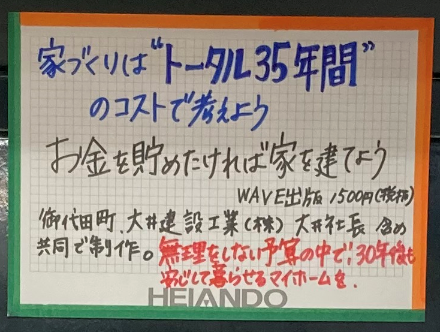 家づくりは“トータル35年間”
のコストで考えよう
お金を貯めたければ家を建てよう
WAVE出版 1500円(税柄)
御代田町、大井建設工業(株) 大井社長 含め
共同で制作。無理をしない予算の中で!30年後も
安心して暮らせるマイホームを.
HEIANDO